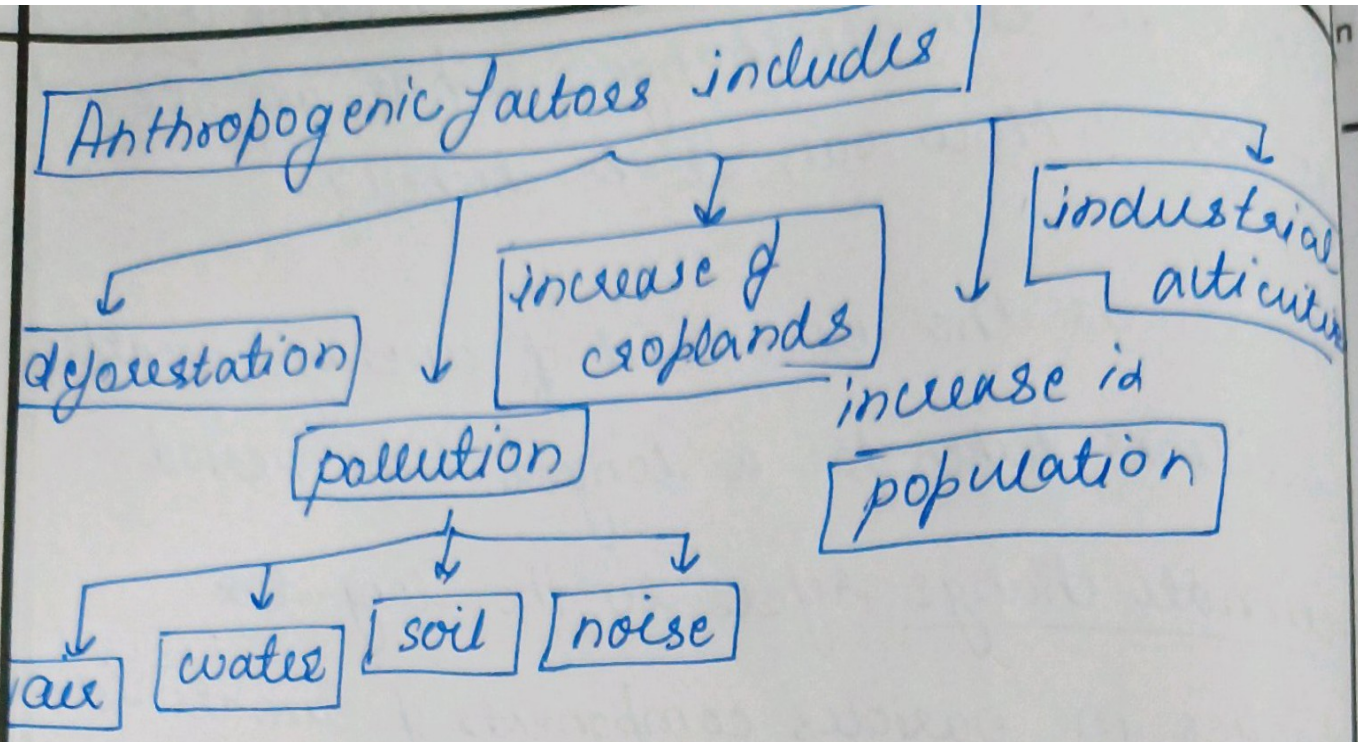 Anthropogenic factors includes
deforestation
pollution
increase of
croplands
increase in
population
industrial
activities
air
water
soil
noise
n